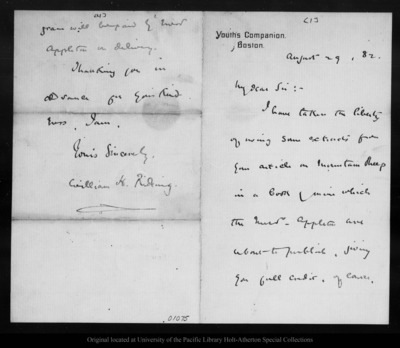 (1)
Youth's Companion.
Boston.
August 29, 82.
My dear Sir:-
I have taken the liberty
of using some extracts from
your article on Mountain Sheep
in a book of mine which
the Messrs. Appleton are
about to publish, giving
you full credit, of course,
gram will be paid by Messrs
Appleton on delivery.
Thanking you in
advance for your kind
ness, I am,
Yours Sincerely,
William H. Rideing.
01075
Original located at University of the Pacific Library Holt-Atherton Special Collections